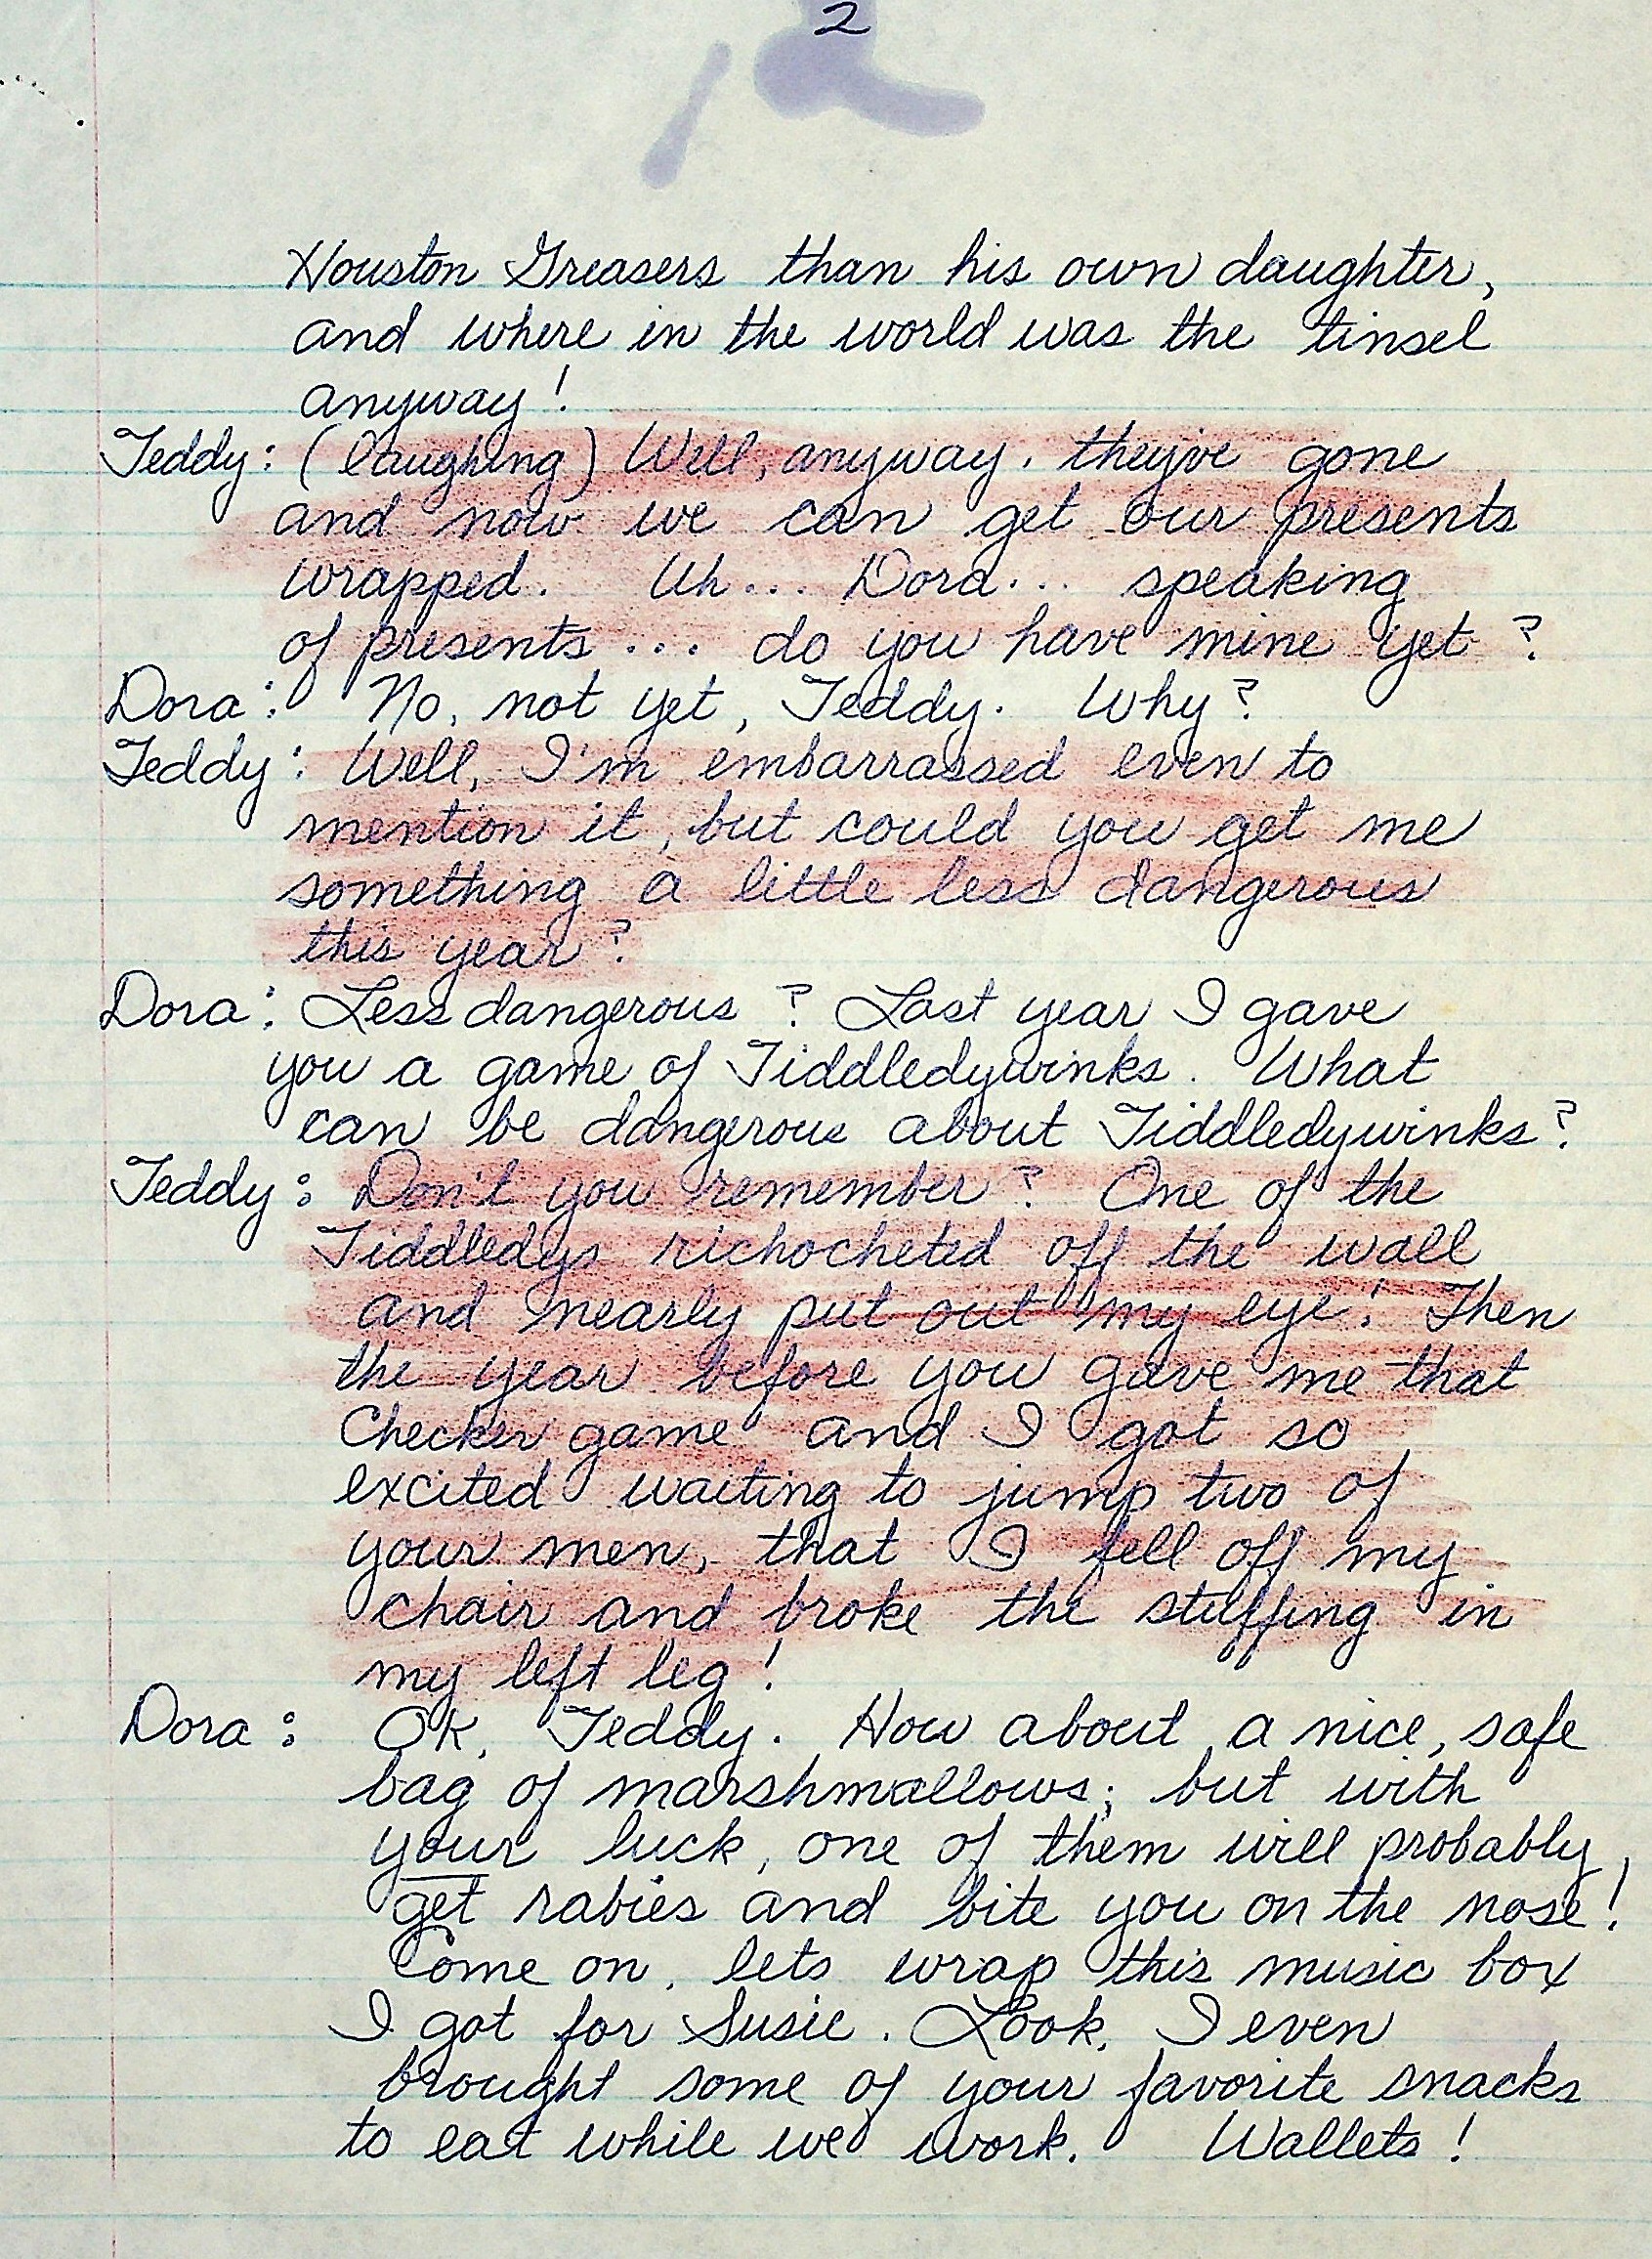 2
Houston Greasers than his own daughter,
and where in the world was the tinsel
anyway!
Teddy: (laughing) Well, anyway, they've gone
and now we can get our presents
wrapped. Uh... Dora... speaking
of presents... do you have mine yet?
Dora: No, not yet, Teddy. Why?
Teddy: Well, I'm embarrassed even to
mention it, but could you get me
something a little less dangerous
this year?
Dora: Less dangerous? Last year I gave
you a game of Tiddledywinks. What
can be dangerous about Tiddledywinks?
Teddy: Don't you remember? One of the
Tiddledys richocheted off the wall
and nearly put out my eye! Then
the year before you gave me that
Checker game and I got so
excited waiting to jump two of
your men, that I fell off my
chair and broke the stuffing in
my left leg!
Dora: OK, Teddy. How about a nice, safe
bag of marshmallows; but with
your luck, one of them will probably
get rabies and bite you on the nose!
Come on, lets wrap this music box
I got for Susie. Look, I even
brought some of your favorite snacks
to eat while we work. Wallets!